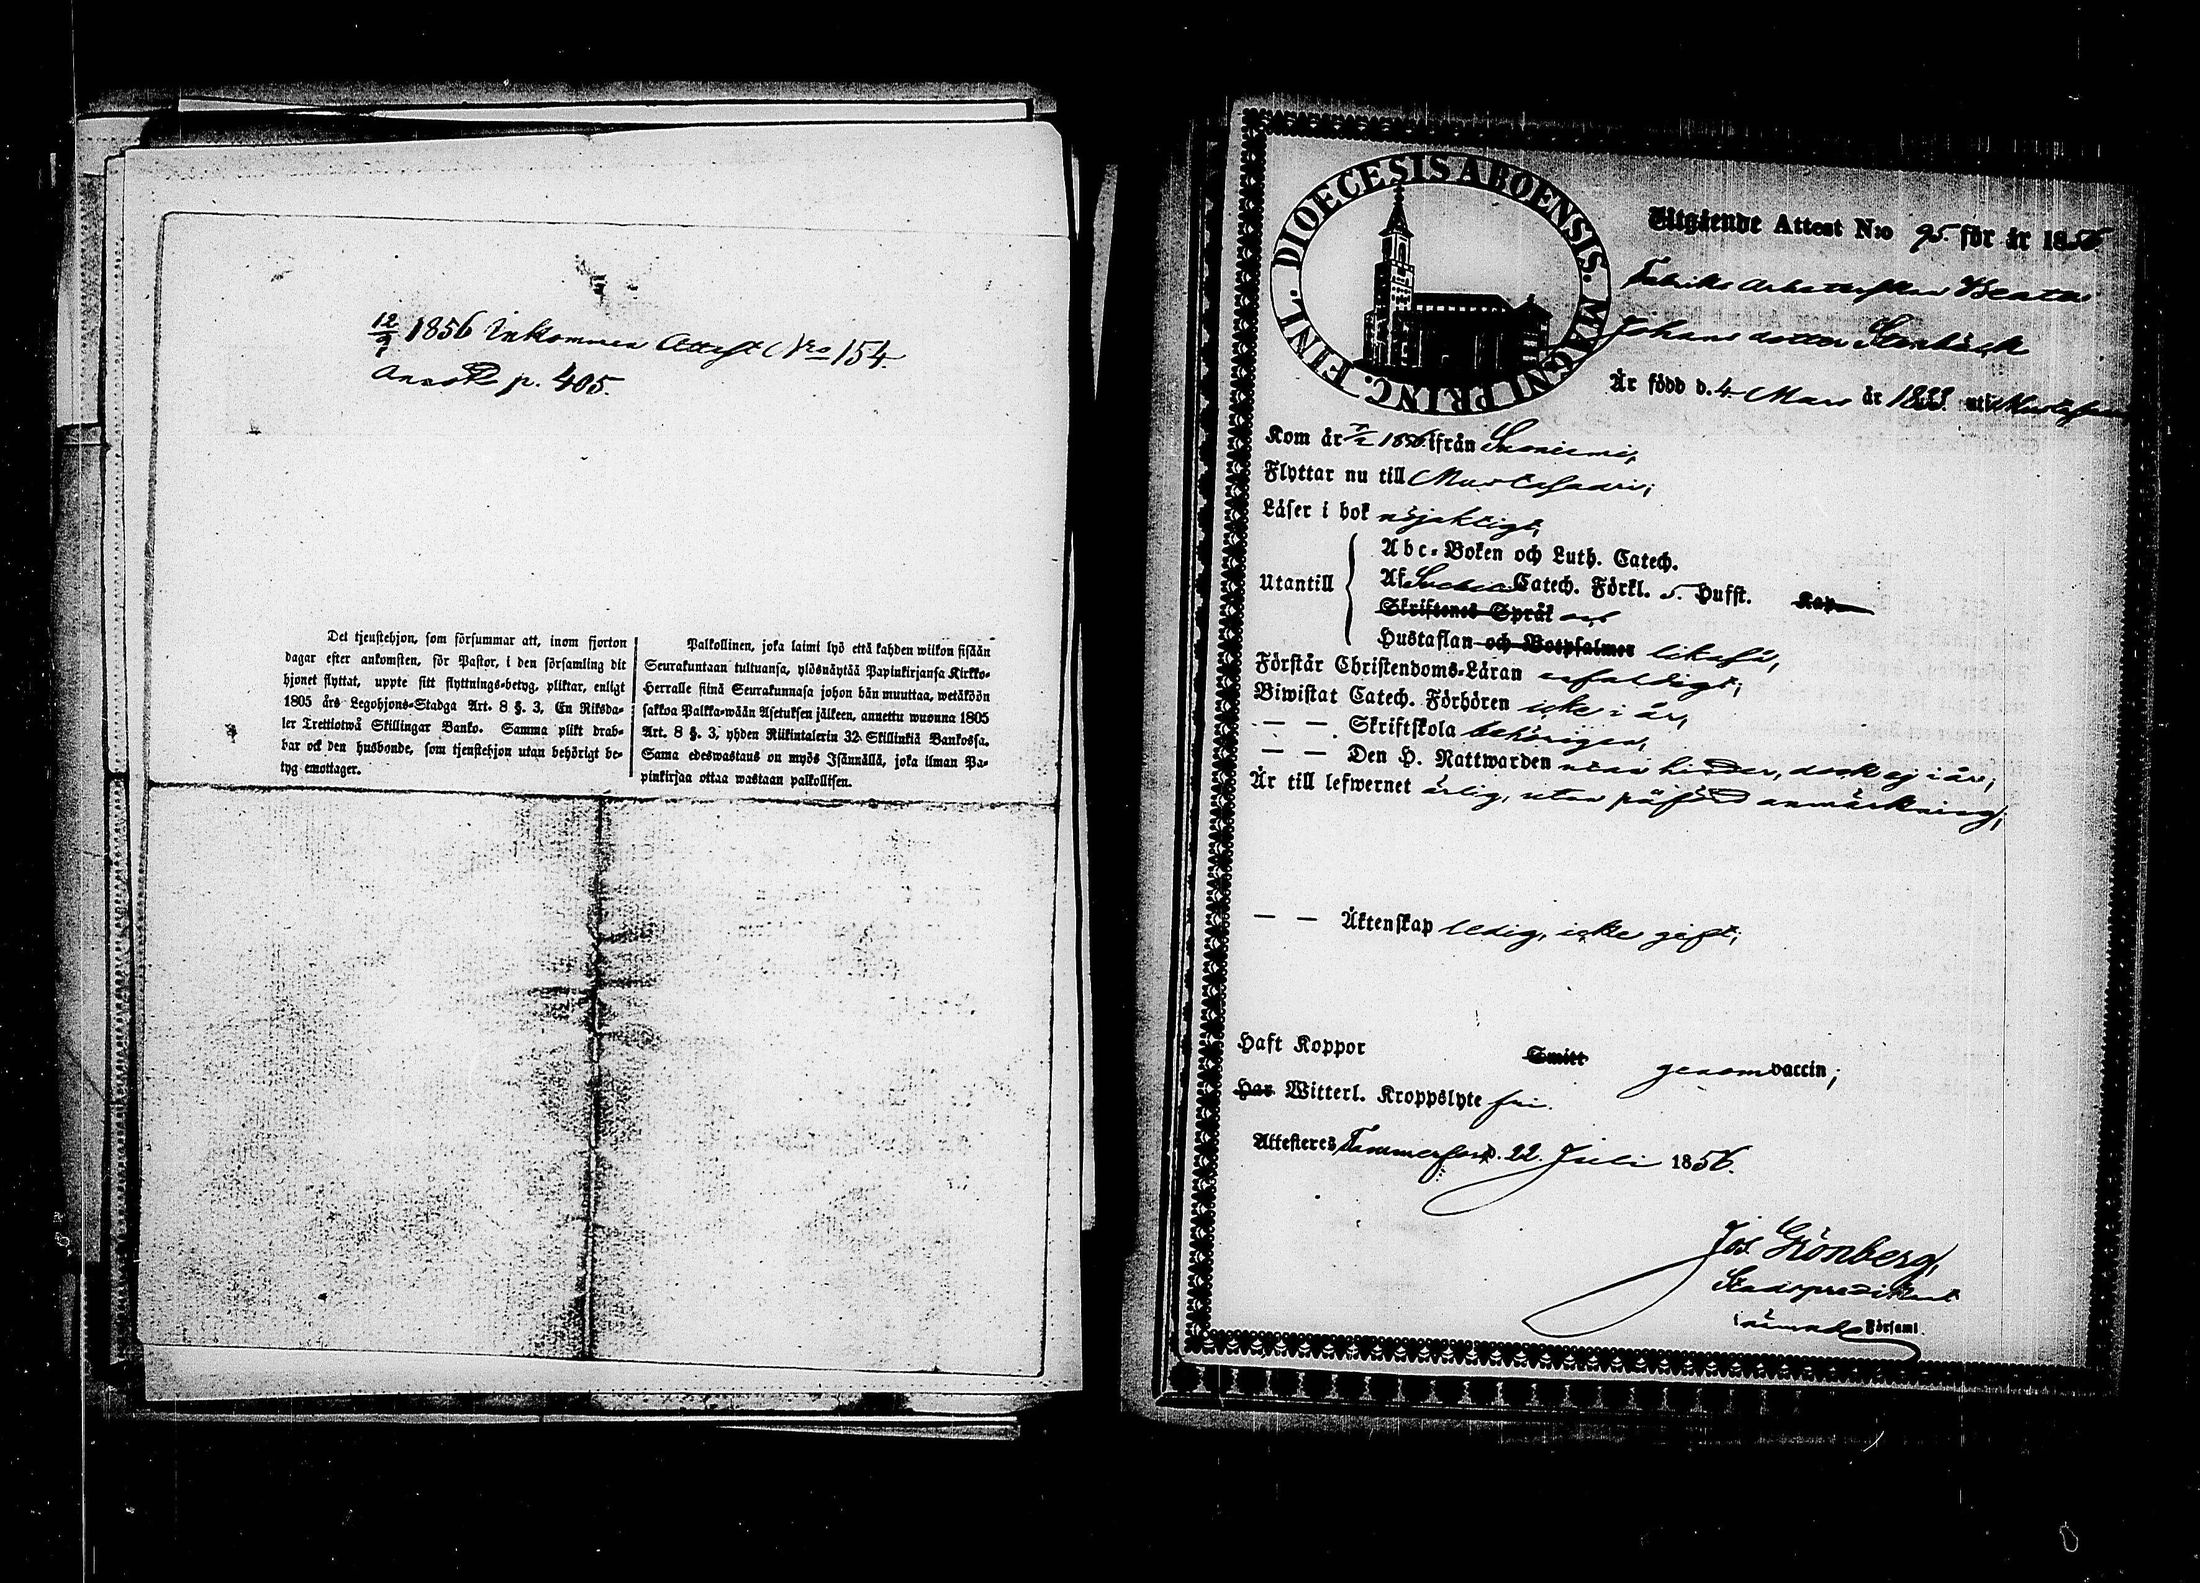 12/9 1856 Inkommen Attest Nro 154.
p. 405.
Det tjenstehjon, som försummar att, inom fjorton
dagar efter ankomsten, för Pastor, i den församling dit
hjonet flyttat, uppte sitt flyttnings-betyg, pliktar, enligt
1805 års Legohjons-Stadga Art. 8 §. 3, En Riksda-
ler Trettiotwå Skillingar Banko. Samma plikt drab-
bar ock den husbonde, som tjenstehjon utan behörigt be-
tyg emottager.
Palkollinen, joka laimi lyö että kahden wiikon sisään
Seurakuntaan tultuansa, ylösnäytää Papinkirjansa Kirkko-
Herralle siinä Seurakunnasa johon hän muuttaa, wetäköön
sakkoa Palkka-wään Asetuksen jälkeen, annettu wuonna 1805
Art. 8 §. 3, yhden Riikintalerin 32 Skillinkiä Bankossa.
Sama edeswastaus on myös Isännällä, joka ilman Pa-
pinkirjaa ottaa wastaan palkollisen.
DIOECESIS ABOENSIS. MAGNI PRINC. FINL.
Utgående Attest N:o 95. för år 1856
Fabriks Arbeterskan Beata
Johans dotter Stenbäck
Är född d. 4 Mars år 1833 uti Mustasaari
Kom år 1856 ifrån Suoniemi,
Flyttar nu till Mustasaari;
Läser i bok nöjaktigt,
Utantill
Abc-Boken och Luth. Catech.
Af Catech. Förkl. 5. Hufst. Kap
Skriftenes Språk
Hustaflan och Botpsalmer likaså,
Förstår Christendoms-Läran enfaldigt;
Biwistat Catech. Förhören icke i år,
— — Skriftskola behörigen,
— — Den H. Nattwarden utan hinder, dock ej i år;
Är till lefwernet ärlig, utan påförd anmärkning;
— — Äktenskap ledig, icke gift;
Haft Koppor Smitt genom vaccin;
Har Witterl. Kroppslyte fri.
Attesteres Tammerfors d. 22. Juli 1856.
Jos. Grönberg,
Stadspredikant
i nämnde Församl.